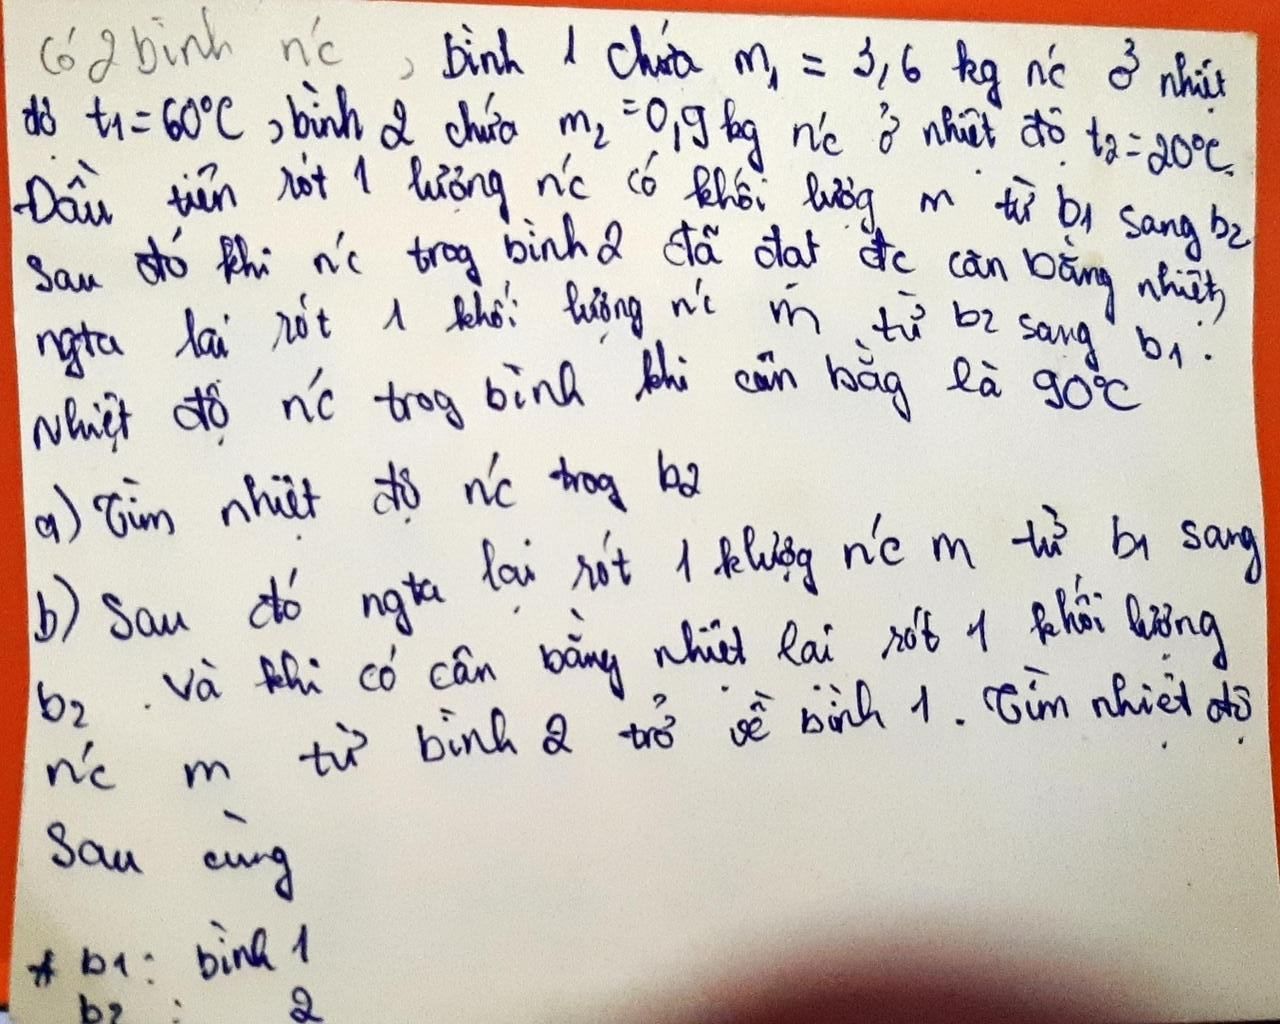 có 2 bình n'c , bình 1 chứa m₁ = 3,6 kg n'c ở nhiệt
độ t1 = 60°C , bình 2 chứa m₂ = 0,9 kg n'c ở nhiệt độ t₂ = 20°C.
Đầu tiên rót 1 lượng n'c có khối lượg m từ b1 sang b2
Sau đó khi n'c trog bình 2 đã đạt đc cân bằng nhiệt,
ngta lại rót 1 khối lượng n'c m từ b2 sang b1.
Nhiệt độ n'c trog bình khi cân bằg là 90°C
a) Tìm nhiệt độ n'c trog b2
b) Sau đó ngta lại rót 1 klượg n'c m từ b1 sang
b2 . Và khi có cân bằng nhiệt lại rót 1 khối lượng
n'c m từ bình 2 trở về bình 1. Tìm nhiệt độ
Sau cùng
* b1 : bình 1
b2 : 2